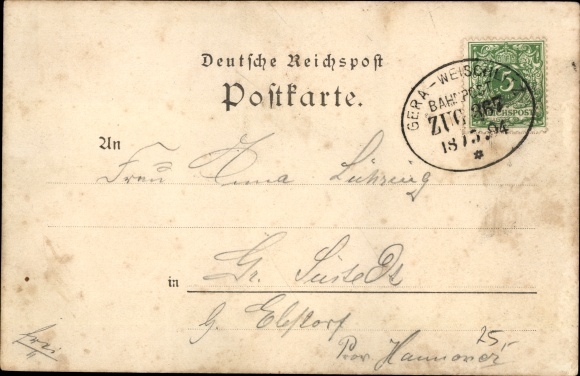 Deutsche Reichspost
Postkarte.
5
REICHSPOST
GERA - WEISCHL
BAHNPOST
ZUG 367
18 / 5 94
An
Frau Anna Lühring
in
Gr. Süstedt
b. Ebstorf
Prov. Hannover
25,-
frei